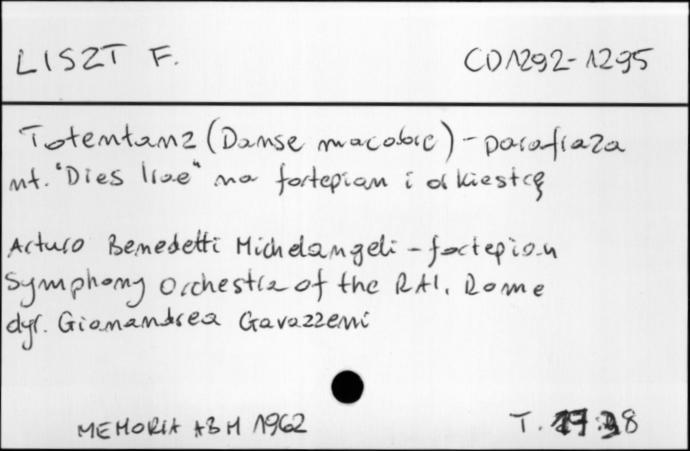 LISZT F. CD1292-1295
Totentanz (Danse macabre) - parafraza
nt. "Dies Irae" na fortepian i orkiestrę
Arturo Benedetti Michelangeli - fortepian
Symphony Orchestra of the RAI, Rome
dyr. Gianandrea Gavazzeni
MEMORIA ABM 1962 T.